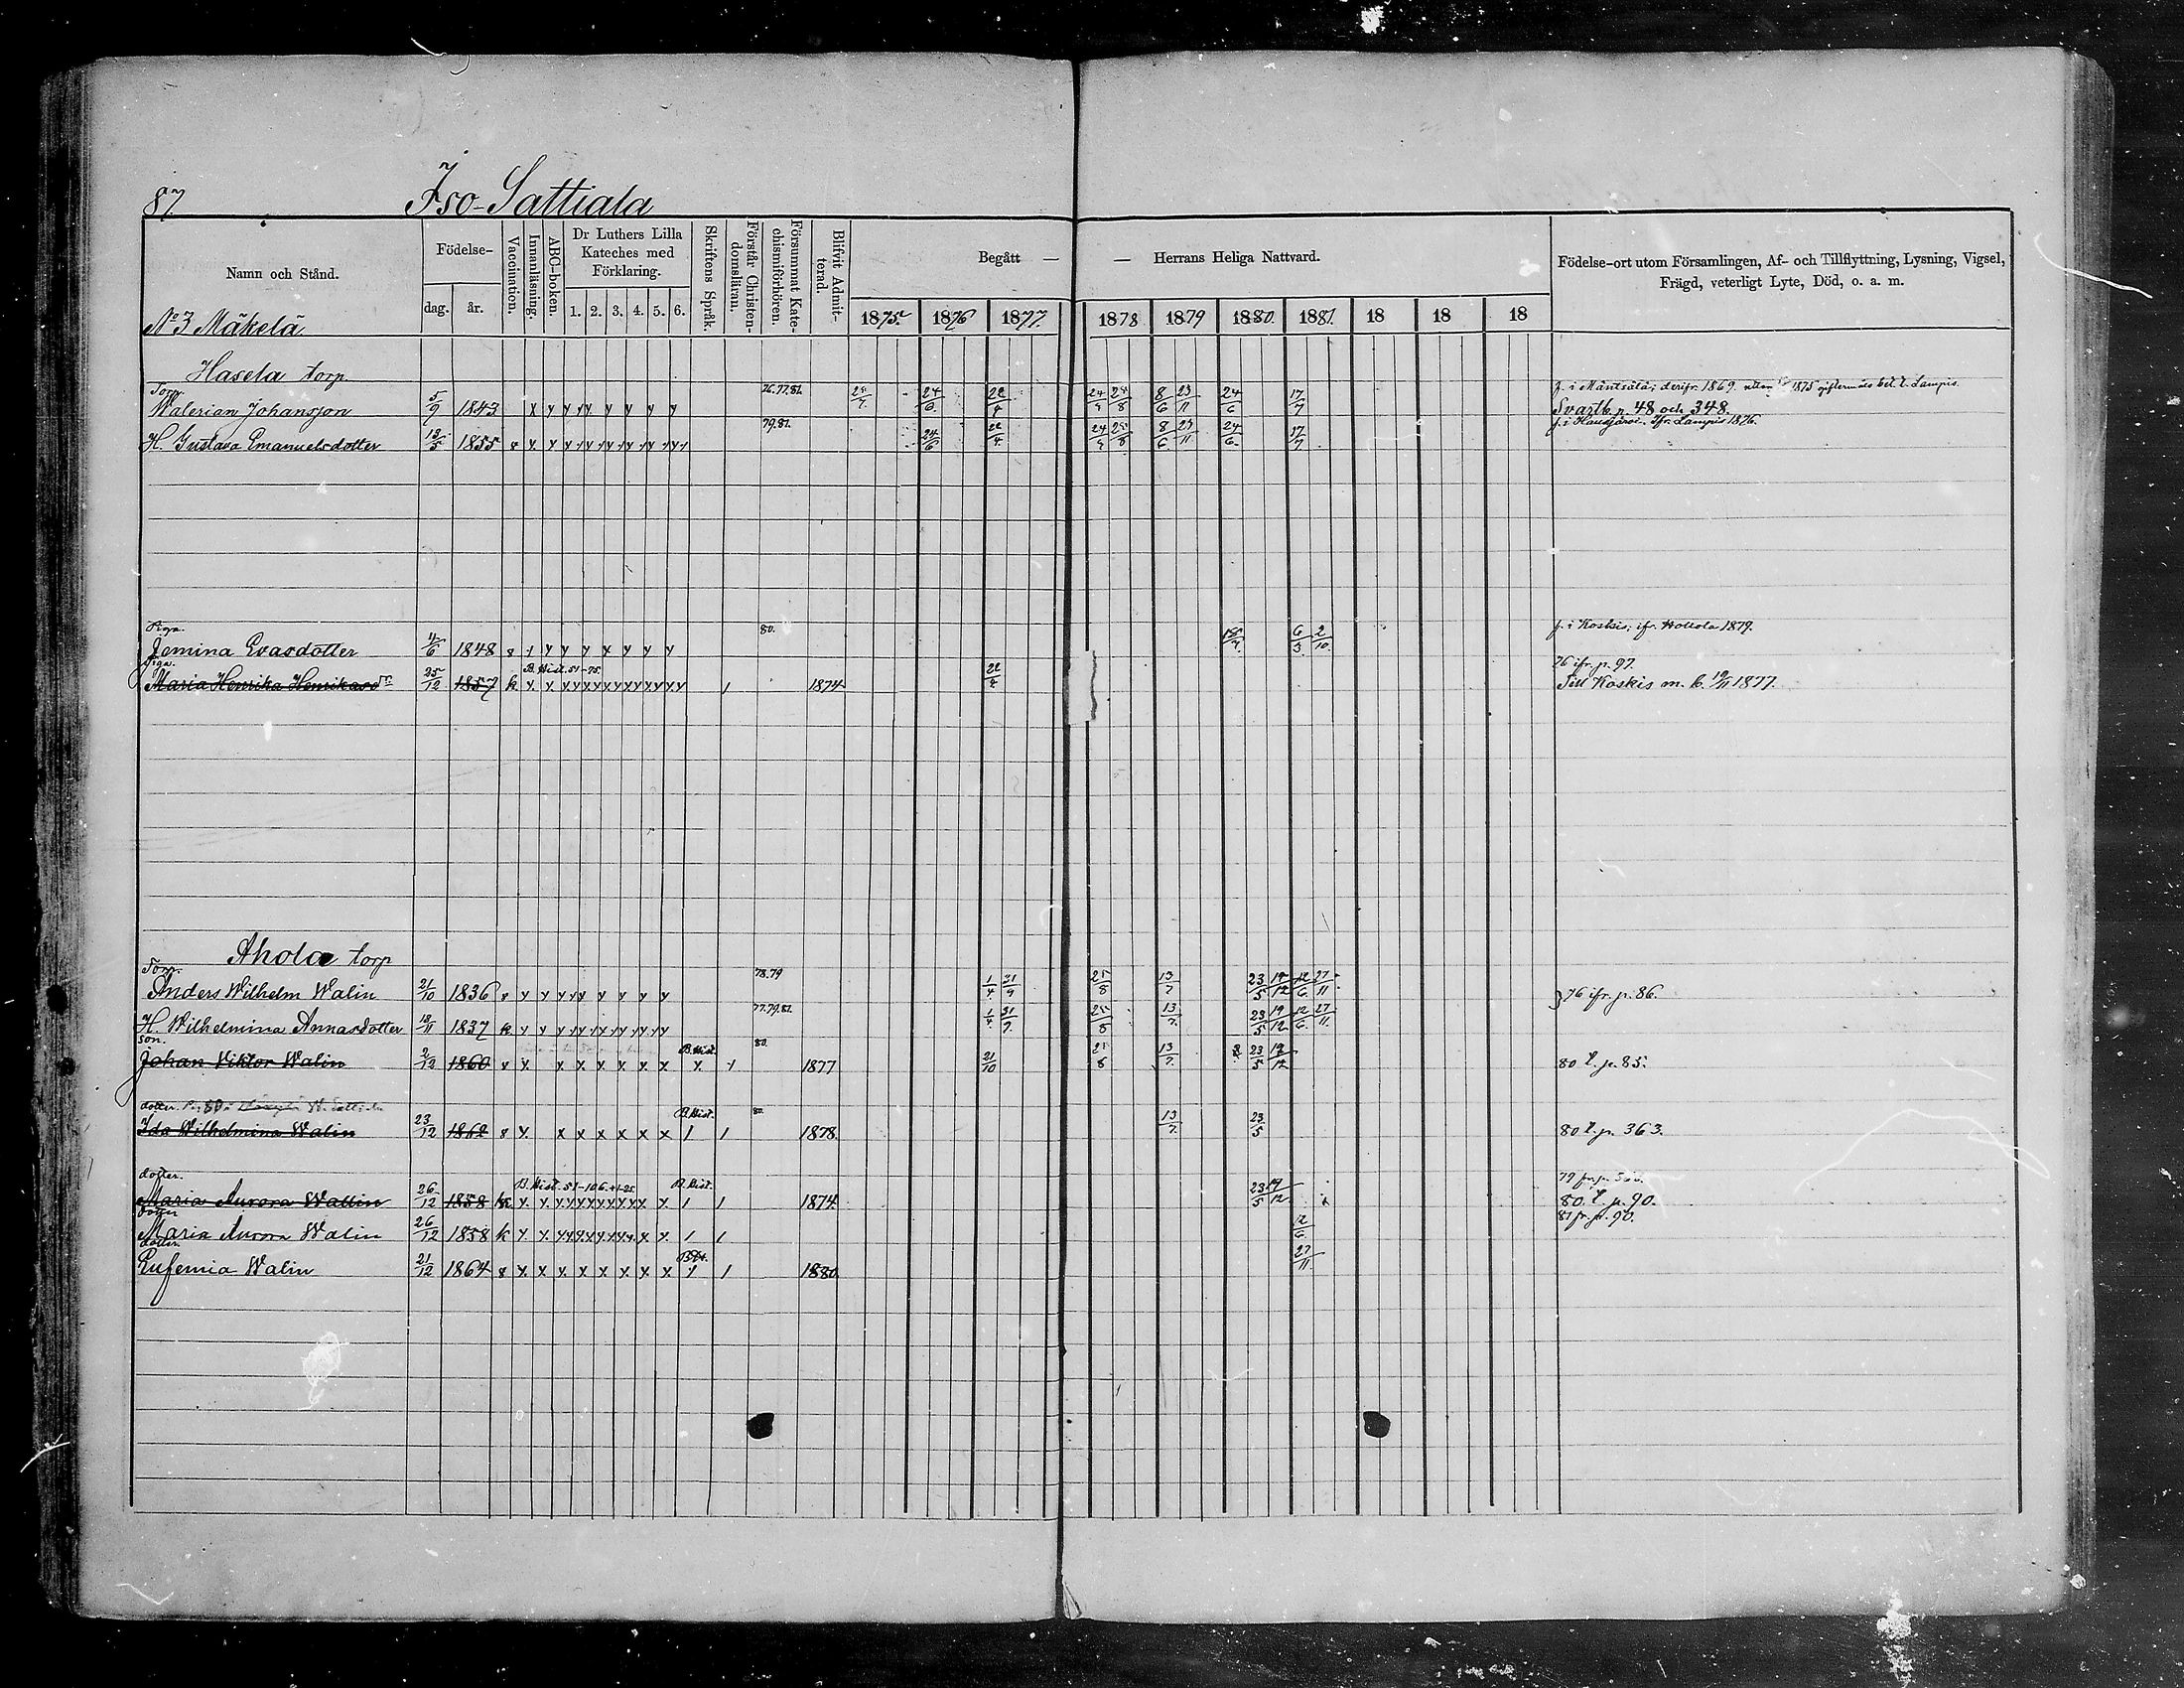 87.
Iso-Sattiala
Namn och Stånd.
Födelse-
dag.
år.
Vaccination.
Innanläsning.
ABC-boken.
Dr Luthers Lilla Kateches med Förklaring.
1. 2. 3. 4. 5. 6.
Skriftens Språk.
Förstår Christendomsläran.
Försummat Katechismiförhören.
Blifvit Admitterad.
Begått — — Herrans Heliga Nattvard.
1875. 1876 1877. 1878 1879 1880. 1881. 18 18 18
Födelse-ort utom Församlingen, Af- och Tillflyttning, Lysning, Vigsel,
Frägd, veterligt Lyte, Död, o. a. m.
No 3 Mäkelä
Hasela torp.
Torp.
Walerian Johansson 5/9 1843 76.77.81. 24/6 22/4 24/4 25/8 8/6 23/11 24/6 17/7
f. i Mäntsälä; derifr. 1869. 1875 giftermåls bet. t. Lampis.
Svartb. p. 48 och 348.
H. Gustava Emanuelsdotter 13/5 1855 79.81. 24/6 22/4 24/4 25/8 8/6 23/11 24/6 17/7
f. i Hausjärvi. Ifr. Lampis 1876.
Piga.
Jemina Evasdotter 4/6 1848 80. 6/3 2/10
f. i Koskis; ifr. Hollola 1879.
Piga.
Maria Henrika Henriksdr 25/12 1857 k B. Hist. 51-75. 1874 22/4
76 ifr. p. 97.
Till Koskis m. b. 19/11 1877.
Ahola torp
Torp.
Anders Wilhelm Walin 21/10 1836 78.79 1/4 21/9 25/8 13/7 23/5 19/12 12/6 27/11
76 ifr. p. 86.
H. Wilhelmina Annasdotter 18/11 1837 k 77.79.81. 1/4 25/8 13/7 23/5 19/12 12/6 27/11
son.
Johan Viktor Walin 2/12 1860 B. Hist. 80. 1877 21/10 13/7 23/5 19/12
80 t. p. 85.
dotter.
Ida Wilhelmina Walin 23/12 1862 B. Hist. 80. 1878. 13/7 23/5
80 t. p. 363.
dotter.
Maria Aurora Wallin 26/12 1858 k B. Hist. B. Hist. 1874. 23/5 19/12
80. t. p. 90.
dotter
Maria Aurora Walin 26/12 1858 k
81 fr. p. 90.
dotter.
Eufemia Walin 21/12 1864 1880. 27/11